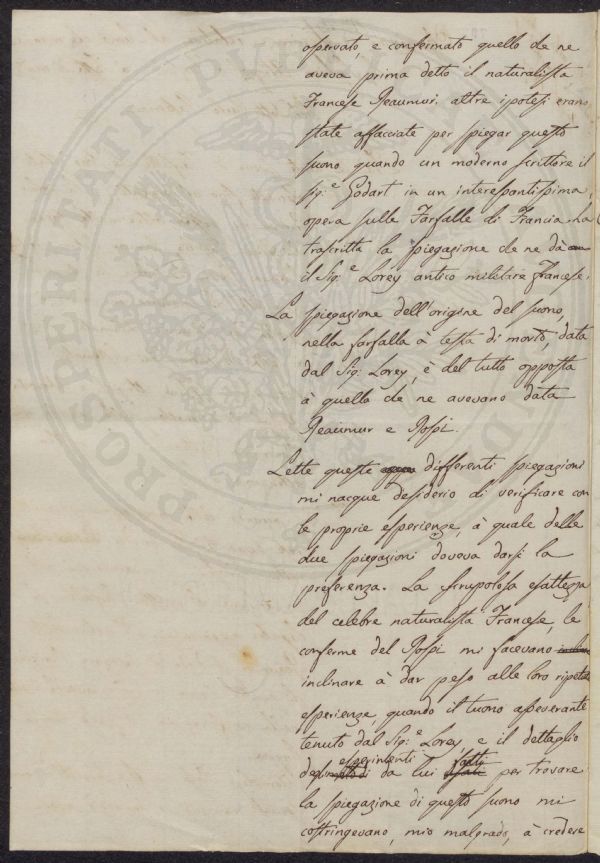 osservato, e confermato quello che ne
aveva prima detto il naturalista
Francese Reaumur. altre ipotesi erano
state affacciate per spiegar questo
suono quando un moderno scrittore il
Sig.e Godart in un interessantissima
opera sulle Farfalle di Francia ha
trascritta la spiegazione che ne dà
il Sig.e Lorey antico militare francese.
La spiegazione dell'origine del suono,
nella farfalla à testa di morto, data
dal Sig: Lorey, è del tutto opposta
à quella che ne avevano data
Reaumur e Rossi.
Lette queste differenti spiegazioni
mi nacque desiderio di verificare con
le proprie esperienze, à quale delle
due spiegazioni doveva darsi la
preferenza. La scrupolosa esattezza
del celebre naturalista Francese, le
conferme del Rossi mi facevano
inclinare à dar peso alle loro ripetute
esperienze, quando il tuono asseverante
tenuto dal Sig.e Lorey, e il dettaglio
degli esperimenti da lui fatti per trovare
la spiegazione di questo suono mi
costringevano, mio malgrado, à credere
PROSPERITATI PUBLICAE